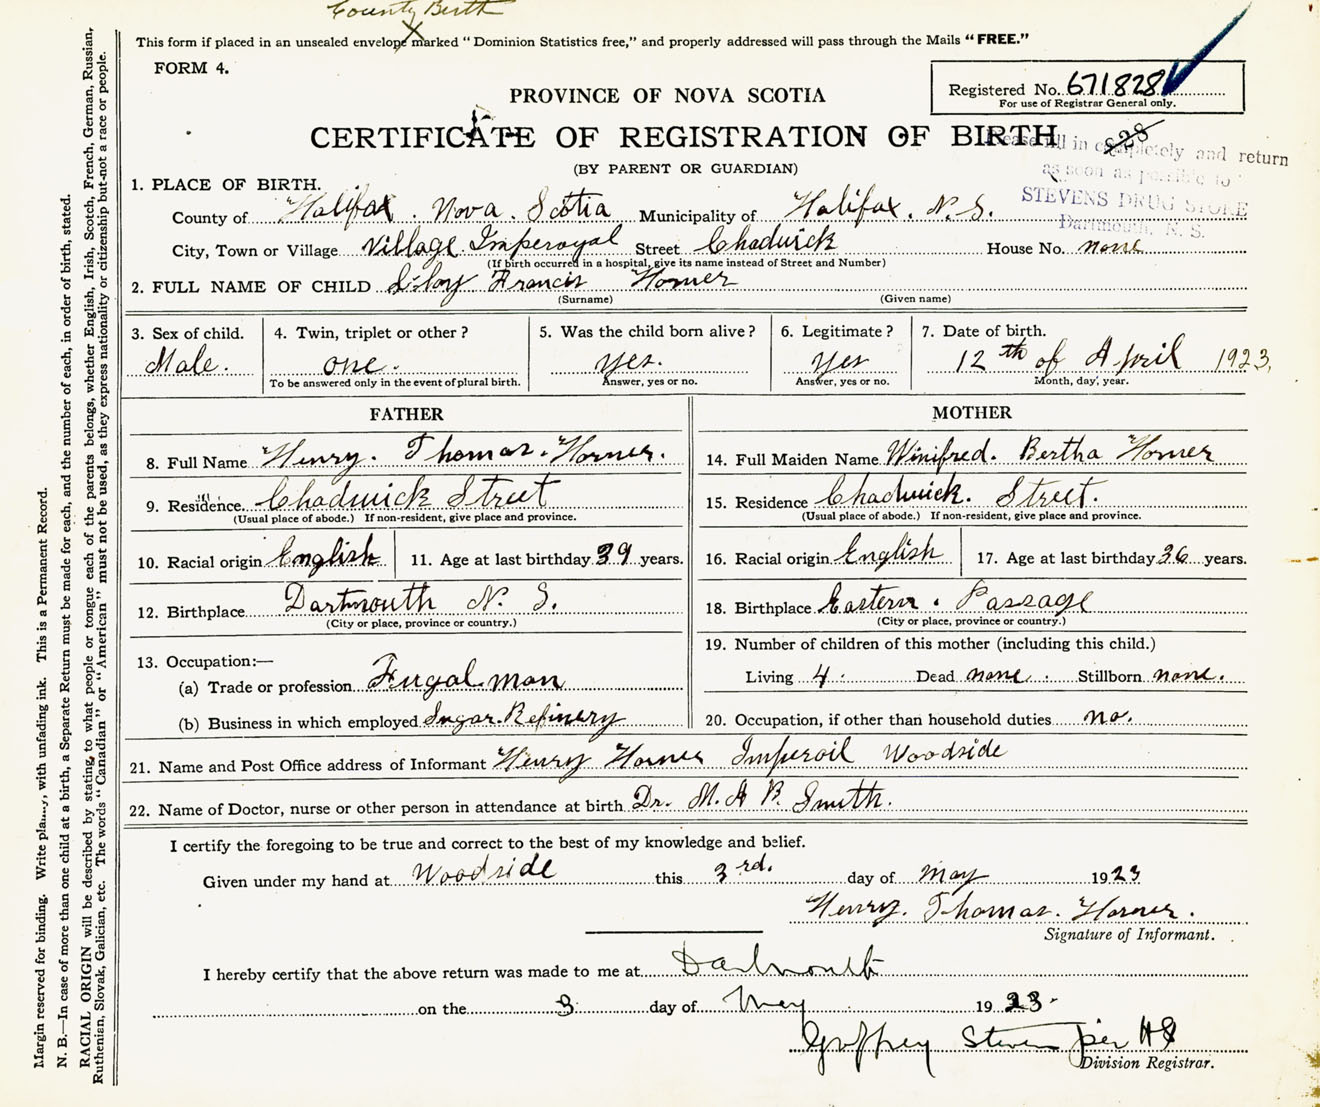 County Birth
This form if placed in an unsealed envelope marked "Dominion Statistics free," and properly addressed will pass through the Mails "FREE."
FORM 4.
Registered No. 671828
For use of Registrar General only.
PROVINCE OF NOVA SCOTIA
CERTIFICATE OF REGISTRATION OF BIRTH
828
(BY PARENT OR GUARDIAN)
Please fill in completely and return
as soon as possible to
STEVENS DRUG STORE
Dartmouth, N. S.
1. PLACE OF BIRTH.
County of Halifax. Nova. Scotia Municipality of Halifax. N. S.
City, Town or Village Village Imperoyal Street Chadwick House No. none
(If birth occurred in a hospital, give its name instead of Street and Number)
2. FULL NAME OF CHILD Francis Horner
(Surname) (Given name)
3. Sex of child. Male.
4. Twin, triplet or other? one.
To be answered only in the event of plural birth.
5. Was the child born alive? yes.
Answer, yes or no.
6. Legitimate? Yes
Answer, yes or no.
7. Date of birth. 12th of April 1923,
Month, day, year.
FATHER
8. Full Name Henry. Thomas. Horner.
9. Residence. Chadwick Street
(Usual place of abode.) If non-resident, give place and province.
10. Racial origin English 11. Age at last birthday 39 years.
12. Birthplace Dartmouth N. S.
(City or place, province or country.)
13. Occupation:—
(a) Trade or profession Fugal man
(b) Business in which employed Sugar Refinery
MOTHER
14. Full Maiden Name Winifred. Bertha Horner
15. Residence Chadwick. Street.
(Usual place of abode.) If non-resident, give place and province.
16. Racial origin English 17. Age at last birthday 36 years.
18. Birthplace Eastern. Passage
(City or place, province or country.)
19. Number of children of this mother (including this child.)
Living 4. Dead none. Stillborn none.
20. Occupation, if other than household duties no.
21. Name and Post Office address of Informant Henry Horner Imperoil Woodside
22. Name of Doctor, nurse or other person in attendance at birth Dr. M. A B. Smith.
I certify the foregoing to be true and correct to the best of my knowledge and belief.
Given under my hand at Woodside this 3rd. day of May 1923
Henry. Thomas. Horner.
Signature of Informant.
I hereby certify that the above return was made to me at Dartmouth
on the 3 day of May 1923.
Goffrey Stevens per HS
Division Registrar.
Margin reserved for binding. Write with unfading ink. This is a Permanent Record.
N. B.—In case of more than one child at a birth, a Separate Return must be made for each, and the number of each, in order of birth, stated.
RACIAL ORIGIN will be described by stating to what people or tongue each of the parents belongs, whether English, Irish, Scotch, French, German, Russian,
Ruthenian, Slovak, Galician, etc. The words "Canadian" or "American" must not be used, as they express nationality or citizenship but not a race or people.